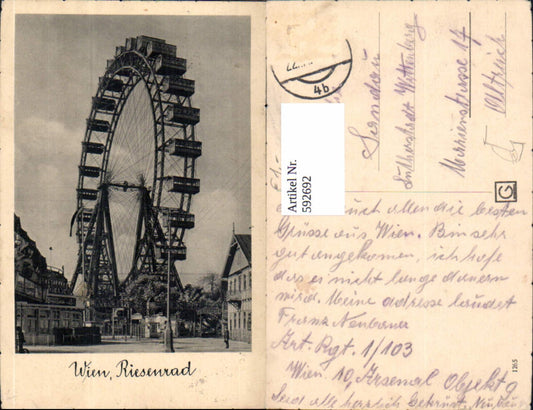 Wien, Riesenrad
4b
Artikel Nr.
592692
Lutherstadt Wittenberg
Marienstrasse 17
G
euch allen die besten
Grüsse aus Wien. Bin sehr
gut angekommen, ich hoffe
das es nicht lange dauern
wird. Meine adresse laudet
Franz Neubauer
Art. Rgt. 1/103
Wien 10, Arsenal Objekt 9
Seid alle herzlich Gekrüst.
1265